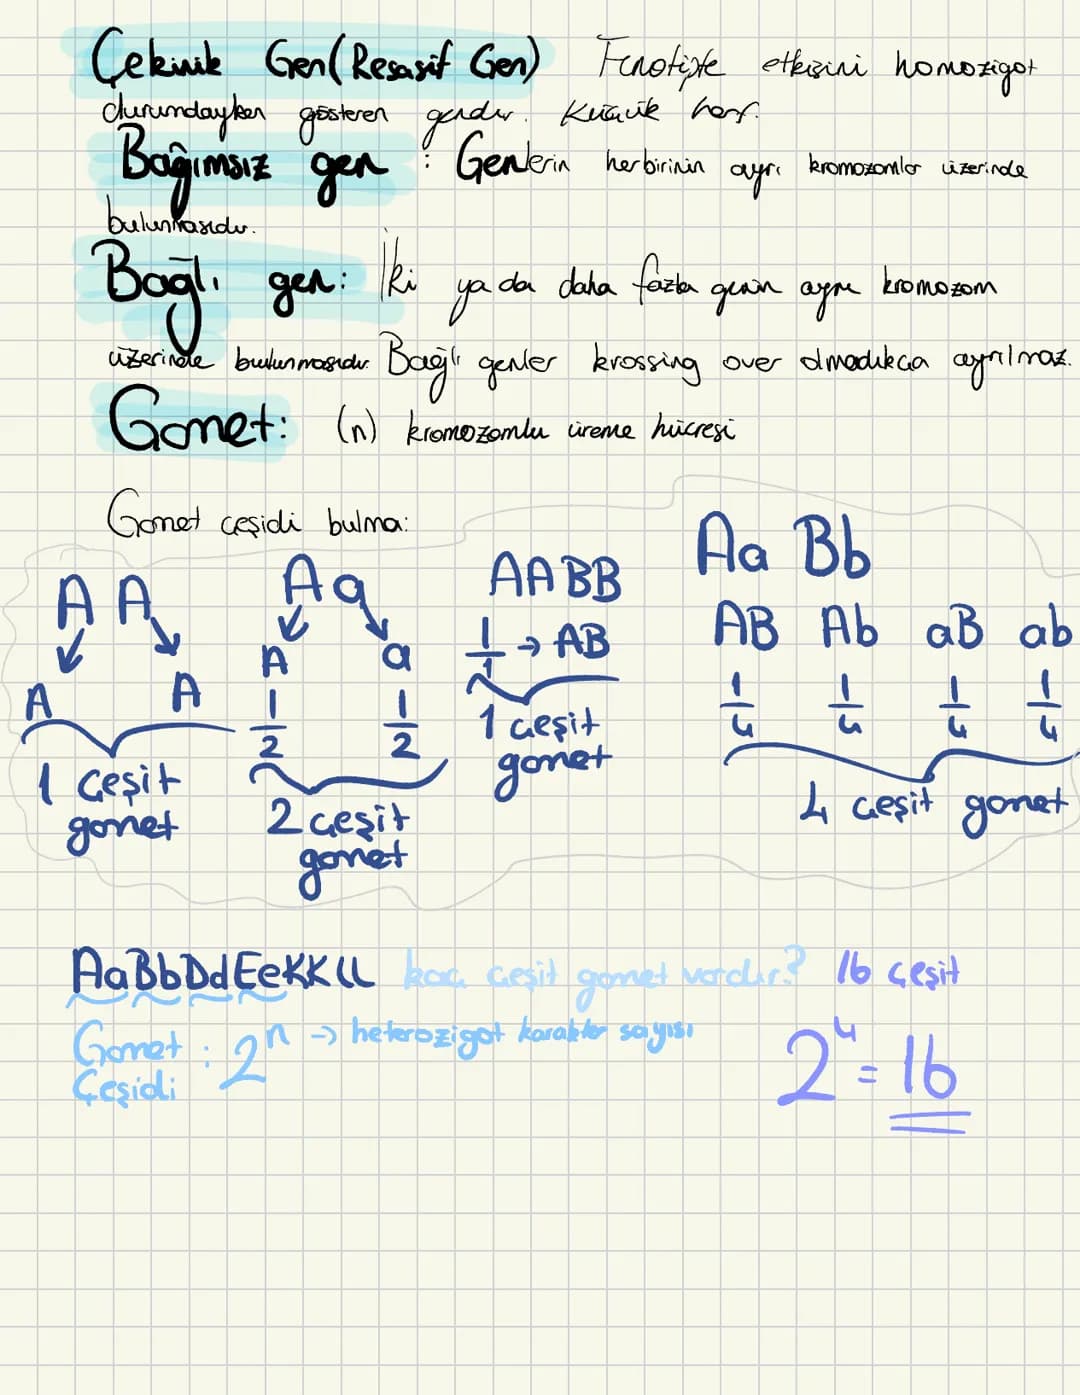 Çekinik Gen (Resasif Gen) Fenotipte etkisini homozigot
durumundayken gösteren gendir. Küçük harf.
Bağımsız gen : Genlerin herbirinin ayrı kromozomlar üzerinde
bulunmasıdır.
Bağlı gen: İki ya da daha fazla genin aynı kromozom
üzerinde bulunmasıdır. Bağlı genler krossing over olmadıkça ayrılmaz.
Gamet: (n) kromozomlu üreme hücresi
Gamet çeşidi bulma:
A A
A A
1 çeşit
gamet
Aa
A a
1/2 1/2
2 çeşit
gamet
AABB
1/1 → AB
1 çeşit
gamet
Aa Bb
AB Ab aB ab
1/4 1/4 1/4 1/4
4 çeşit gamet
AaBbDdEeKKLL kaç çeşit gamet vardır? 16 çeşit
Gamet Çeşidi : 2ⁿ → heterozigot karakter sayısı
2⁴ = 16